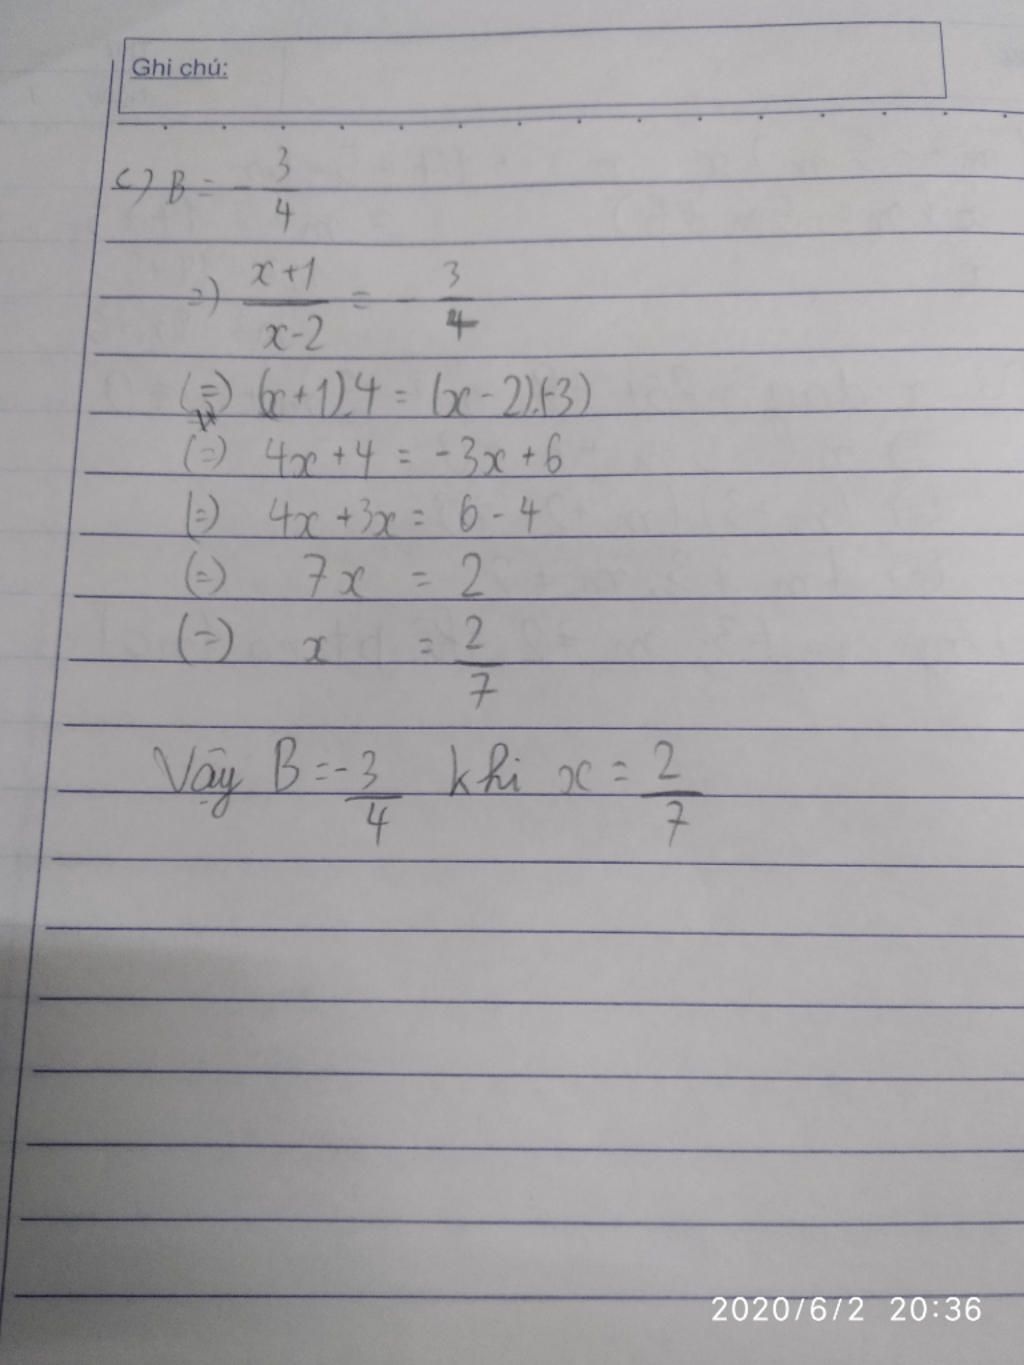 Ghi chú:
c) B = - 3/4
=) x+1/x-2 = - 3/4
(=) (x+1).4 = (x-2).(-3)
(=) 4x+4 = -3x+6
(=) 4x+3x = 6-4
(=) 7x = 2
(=) x = 2/7
Vậy B = -3/4 khi x = 2/7
2020/6/2 20:36